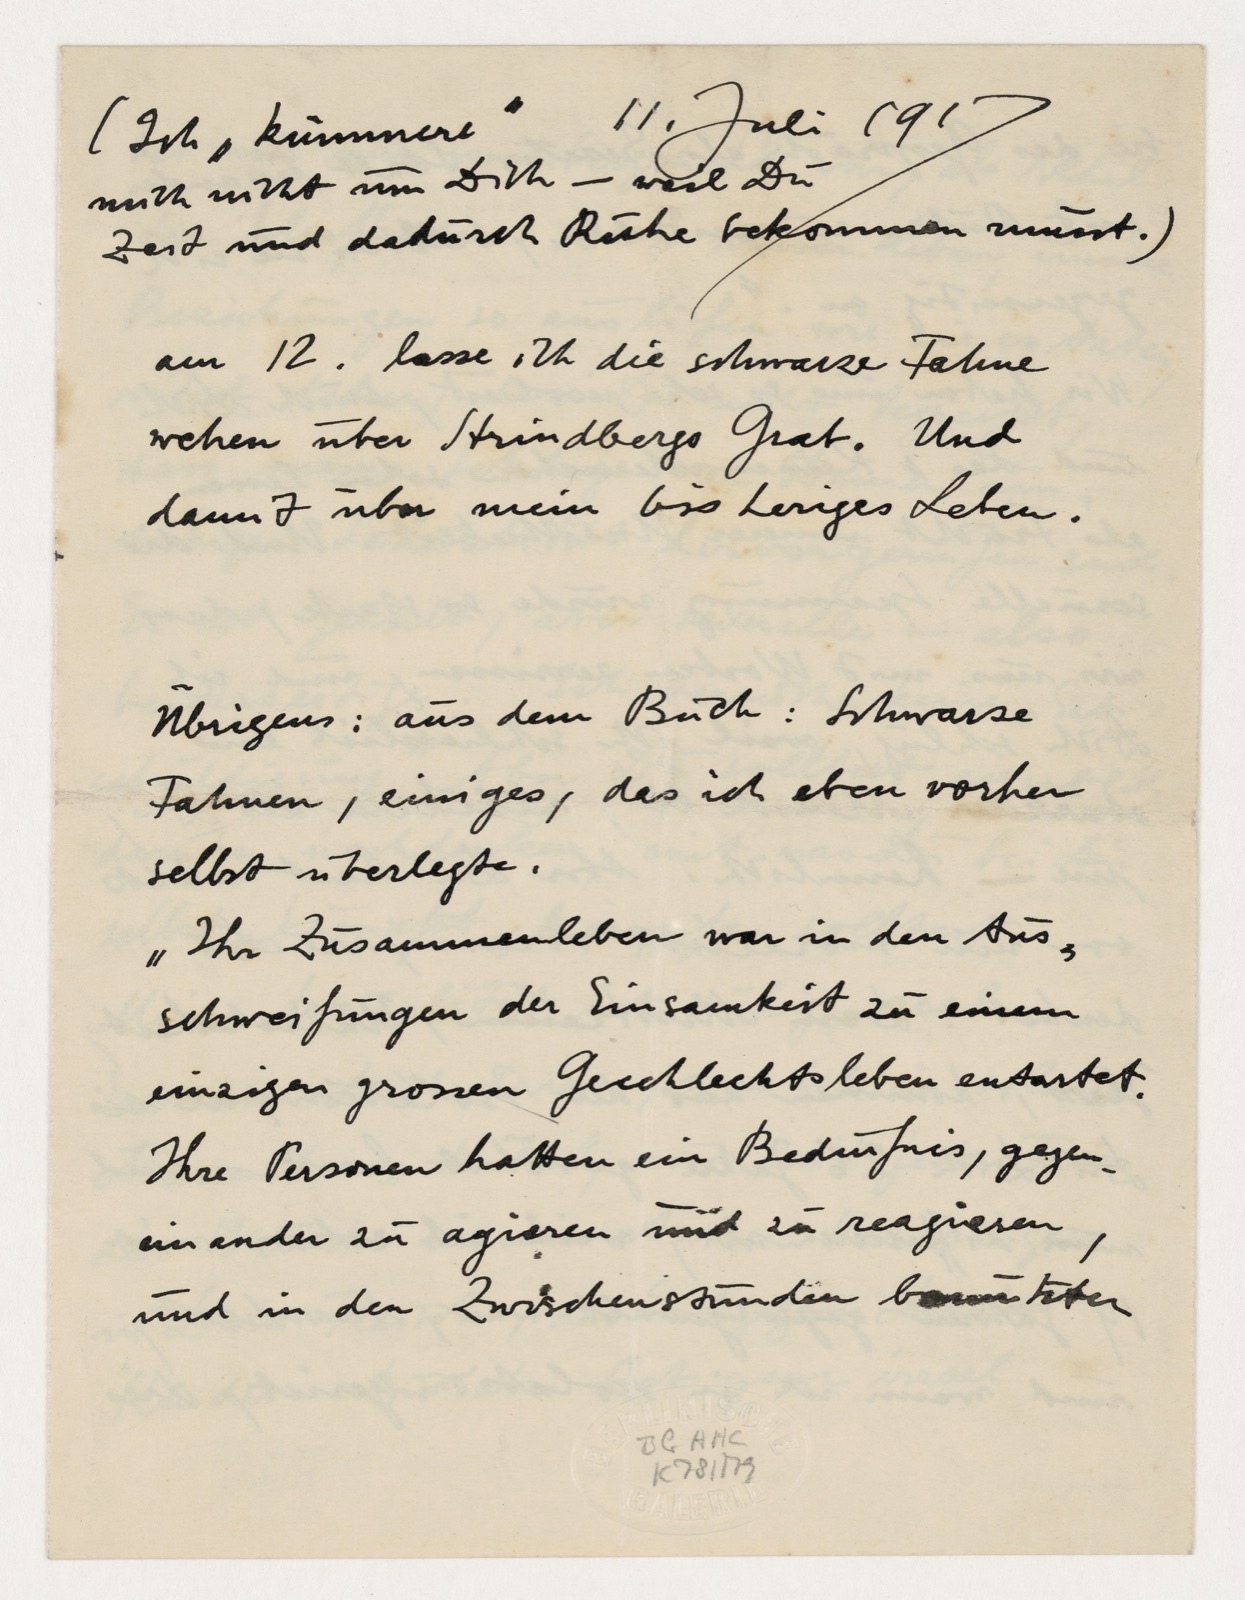 11. Juli 1917
(Ich „kümmere"
mich nicht um Dich – weil Du
Zeit und dadurch Ruhe bekommen musst.)
am 12. lasse ich die schwarze Fahne
wehen über Strindbergs Grab. Und
damit über mein bisheriges Leben.
Übrigens: aus dem Buch: Schwarze
Fahnen, einiges, das ich eben vorher
selbst überlegte.
„Ihr Zusammenleben war in den Aus-
schweifungen der Einsamkeit zu einem
einzigen grossen Geschlechtsleben entartet.
Ihre Personen hatten ein Bedürfnis, gegen-
einander zu agieren und zu reagieren,
und in den Zwischenstunden benützten
BERLINISCHE
BG AHC
K781/79
GALERIE